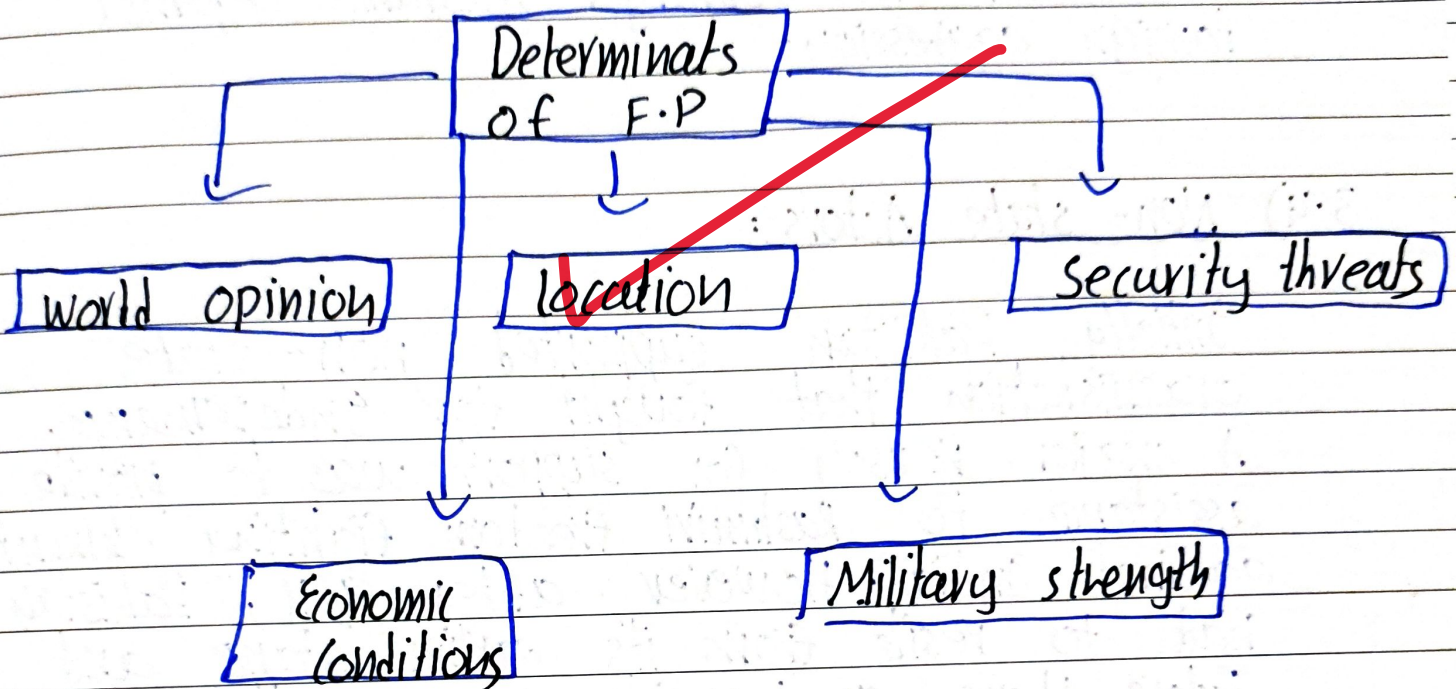 Determinats
of F.P
world opinion
location
security threats
Economic
Conditions
Military strength